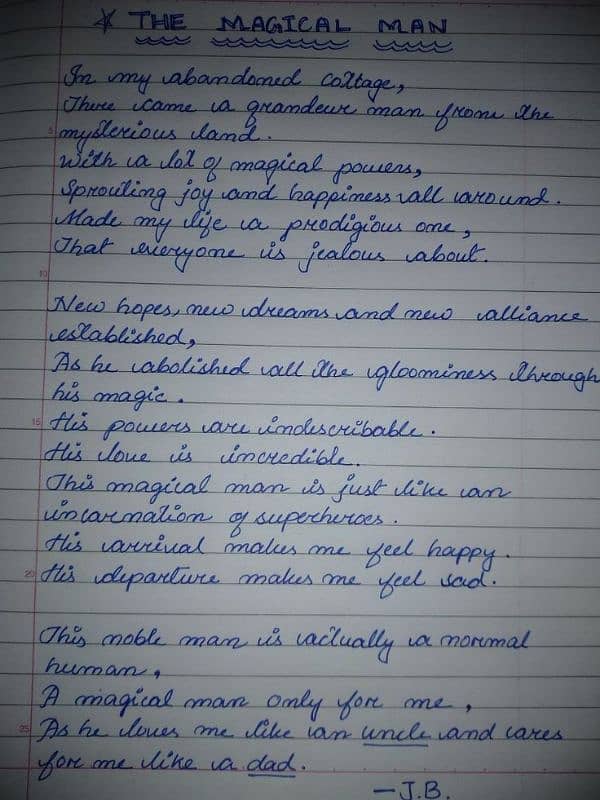 ☆ THE MAGICAL MAN
In my abandoned cottage,
There came a grandeur man from the
5
mysterious land.
With a lot of magical powers,
Sprouting joy and happiness all around.
Made my life a prodigious one,
That everyone is jealous about.
10
New hopes, new dreams and new alliance
established,
As he abolished all the gloominess through
his magic.
15
His powers are indescribable.
His love is incredible.
This magical man is just like an
incarnation of superheroes.
His arrival makes me feel happy.
20
His departure makes me feel sad.
This noble man is actually a normal
human,
A magical man only for me,
25
As he loves me like an uncle and cares
for me like a dad.
—J.B.